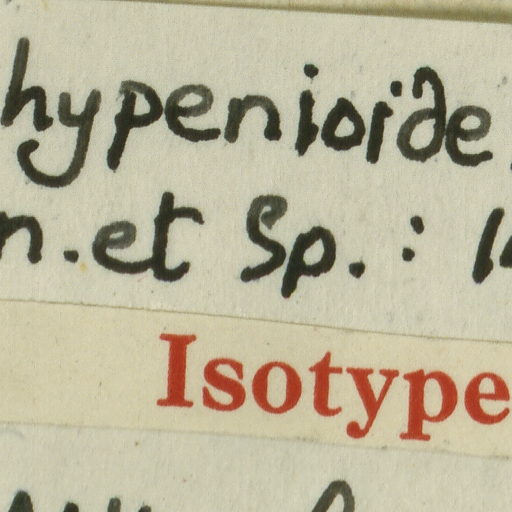 hypenioïde
n.et Sp.:
Isotype